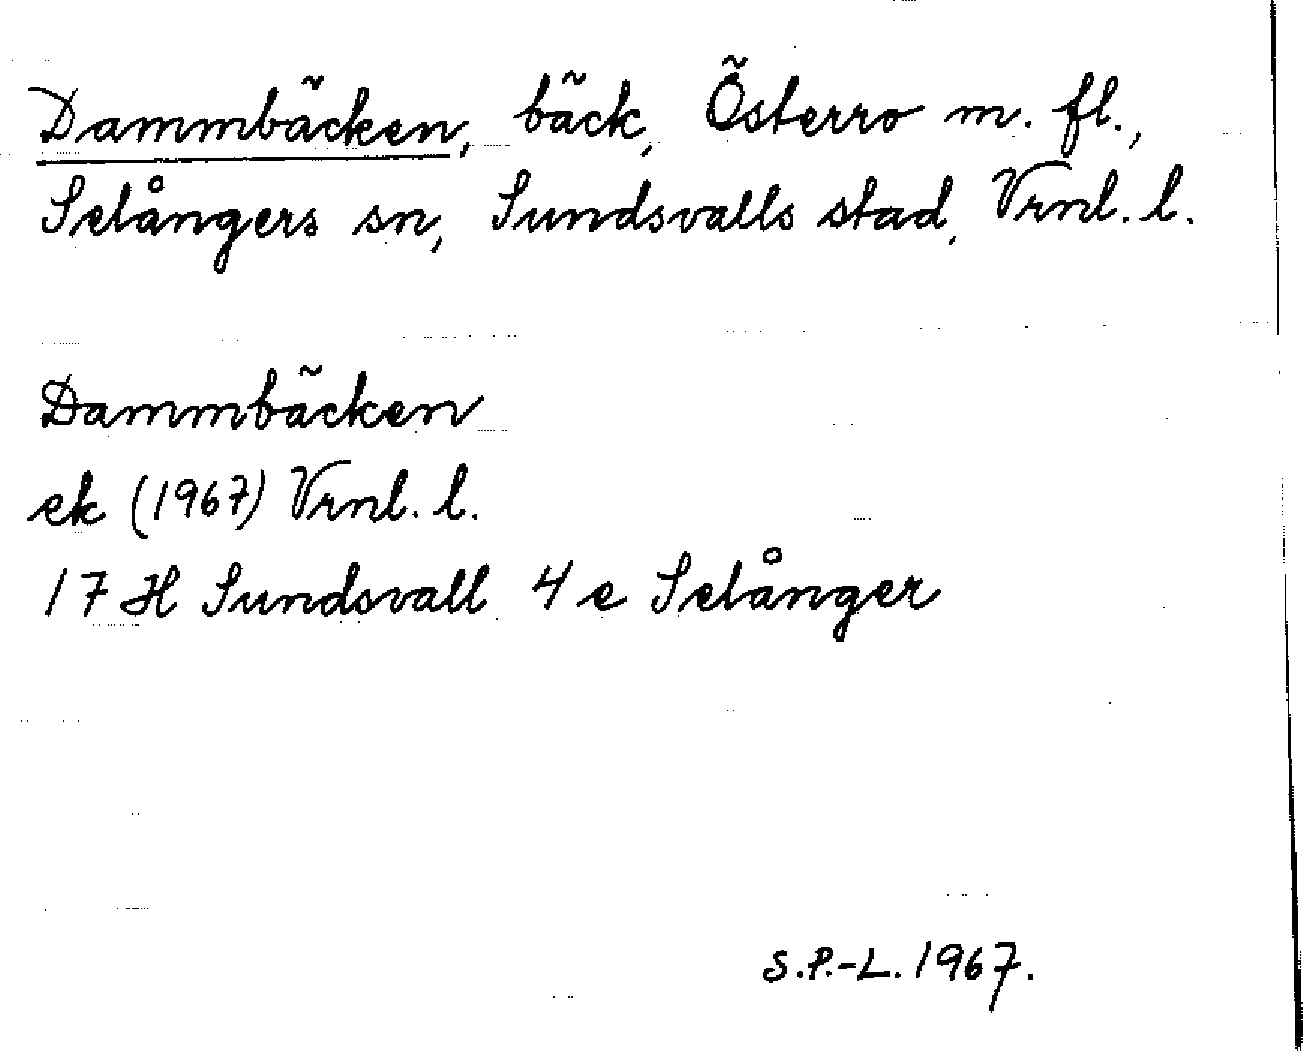 Dammbäcken, bäck, Österro m. fl.,
Selångers sn, Sundsvalls stad, Vrnl. l.
Dammbäcken
ek (1967) Vrnl. l.
17 H Sundsvall 4 e Selånger
S.P.-L. 1967.